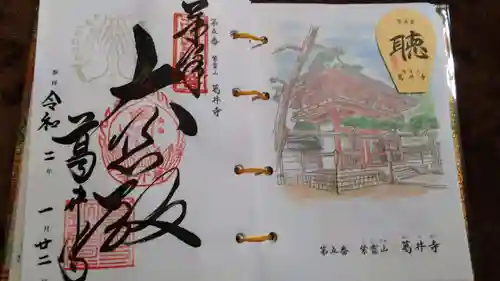 第五番 紫雲山 葛井寺
奉拝
大悲殿
葛井寺
令和二年一月廿二
聴
葛井寺
第五番 紫雲山 葛井寺